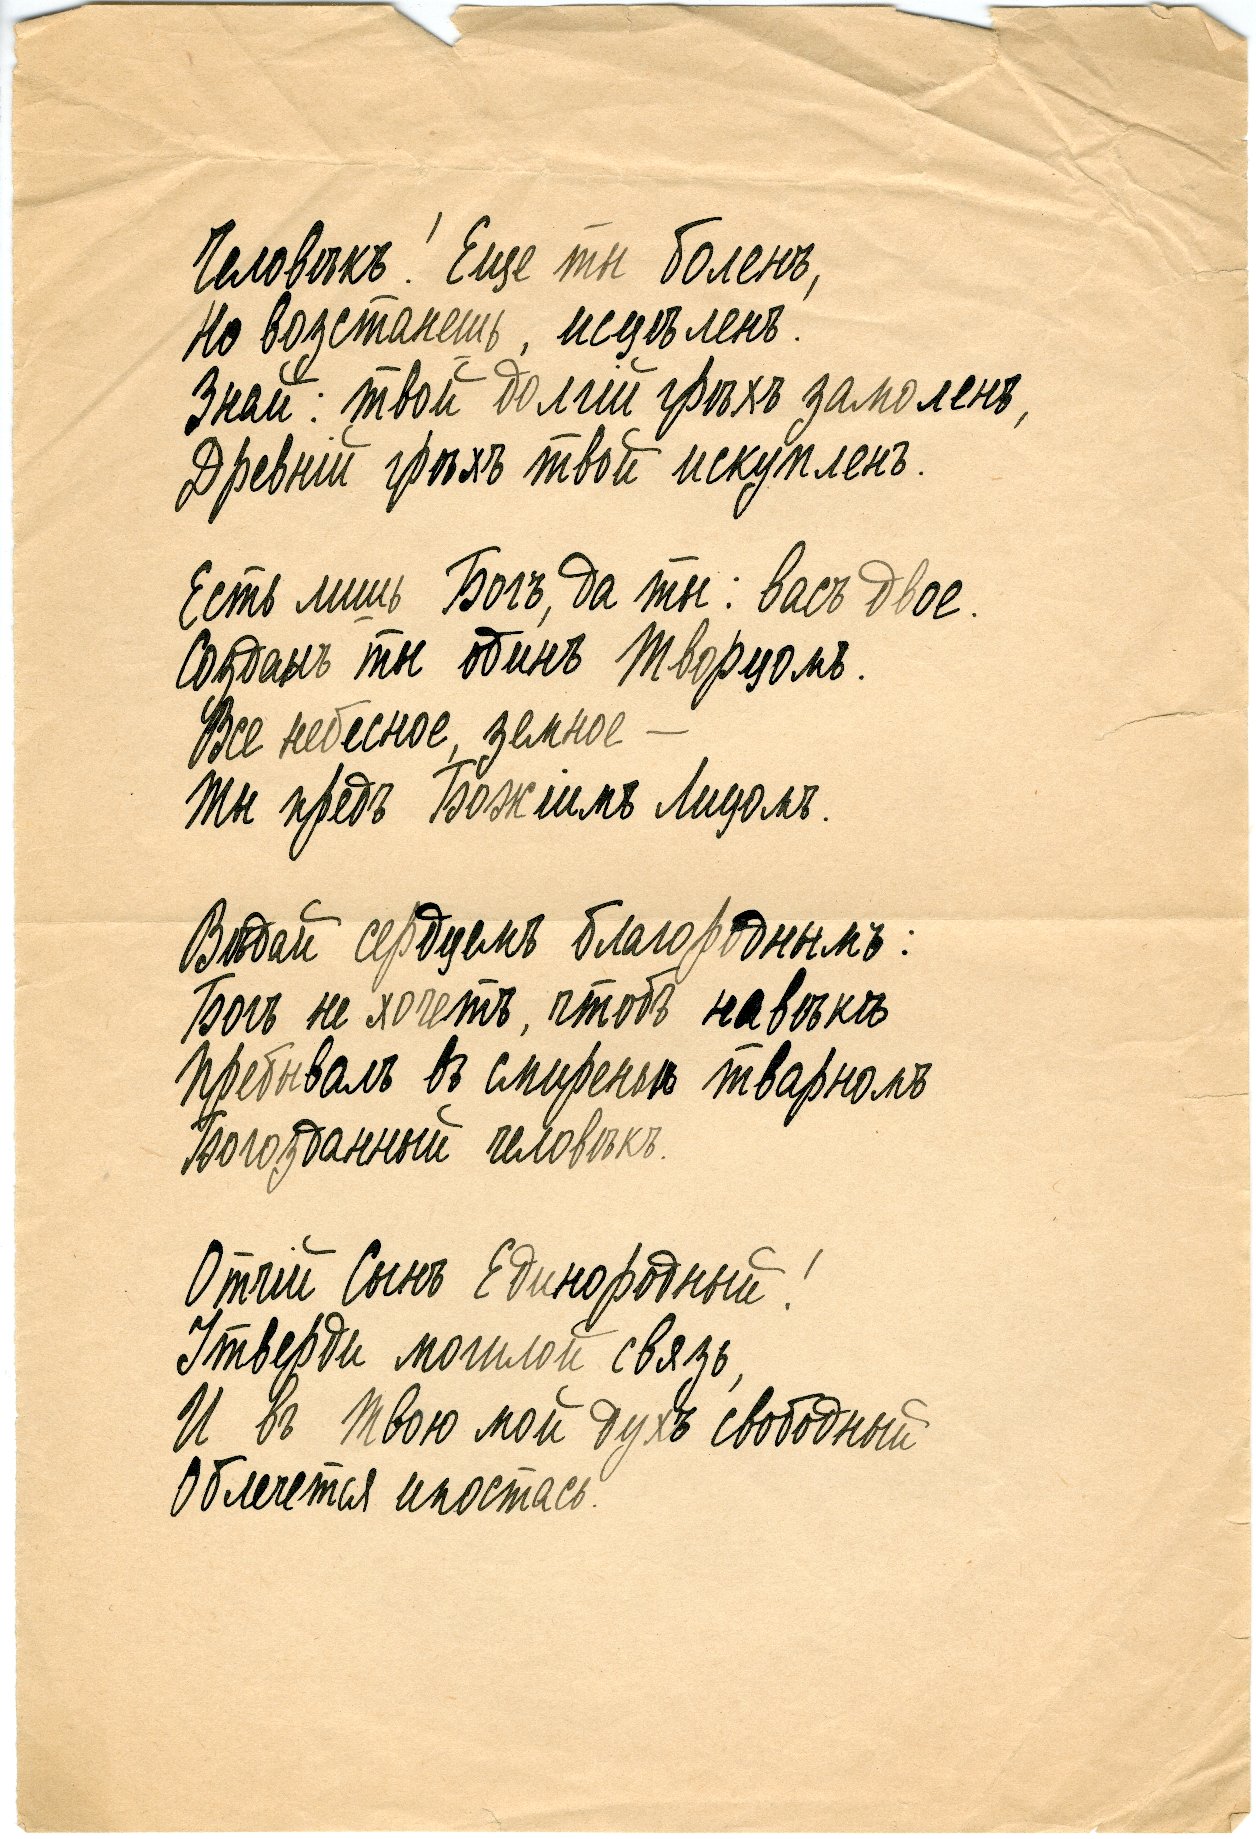 Человѣкъ! Еще ты боленъ,
Но возстанешь, исцѣленъ.
Знай: твой долгій грѣхъ замоленъ,
Древній грѣхъ твой искупленъ.
Есть лишь Богъ, да ты: васъ двое.
Созданъ ты одинъ Творцомъ.
Все небесное, земное —
Ты предъ Божіимъ Лицомъ.
Вѣдай сердцемъ благороднымъ:
Богъ не хочетъ, чтобъ навѣкъ
Пребывалъ въ смиреньи тварномъ
Богозданный человѣкъ.
Отчій Сынъ Единородный!
Утверди могилой связь,
И въ Твою мой духъ свободный
Облечется ипостась.